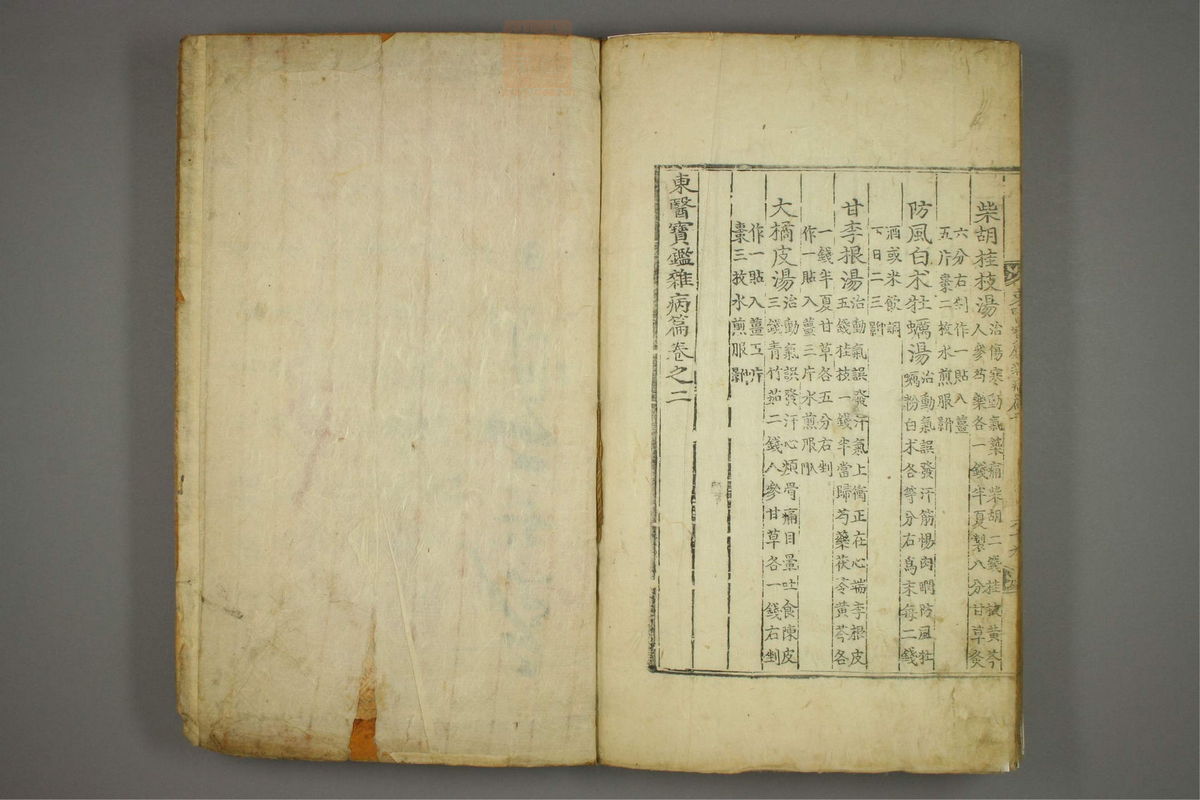 柴胡桂枝湯 治傷寒動氣築痛柴胡二錢桂枝黃芩
人參芍藥各一錢半夏製八分甘草灸
六分右剉作一貼入薑
五片棗二枚水煎服
防風白朮牡蠣湯 治動氣誤發汗筋惕肉瞤防風牡
蠣粉白朮各等分右爲末每二錢
酒或米飮調
下日二三
甘李根湯 治動氣誤發汗氣上衝正在心端李根皮
五錢桂枝一錢半當歸芍藥茯苓黃芩各
一錢半夏甘草各五分右剉
作一貼入薑三片水煎服
大橘皮湯 治動氣誤發汗心煩骨痛目暈吐食陳皮
三錢靑竹茹二錢人參甘草各一錢右剉
作一貼入薑五片
棗三枚水煎服
東醫寶鑑雜病篇卷之二